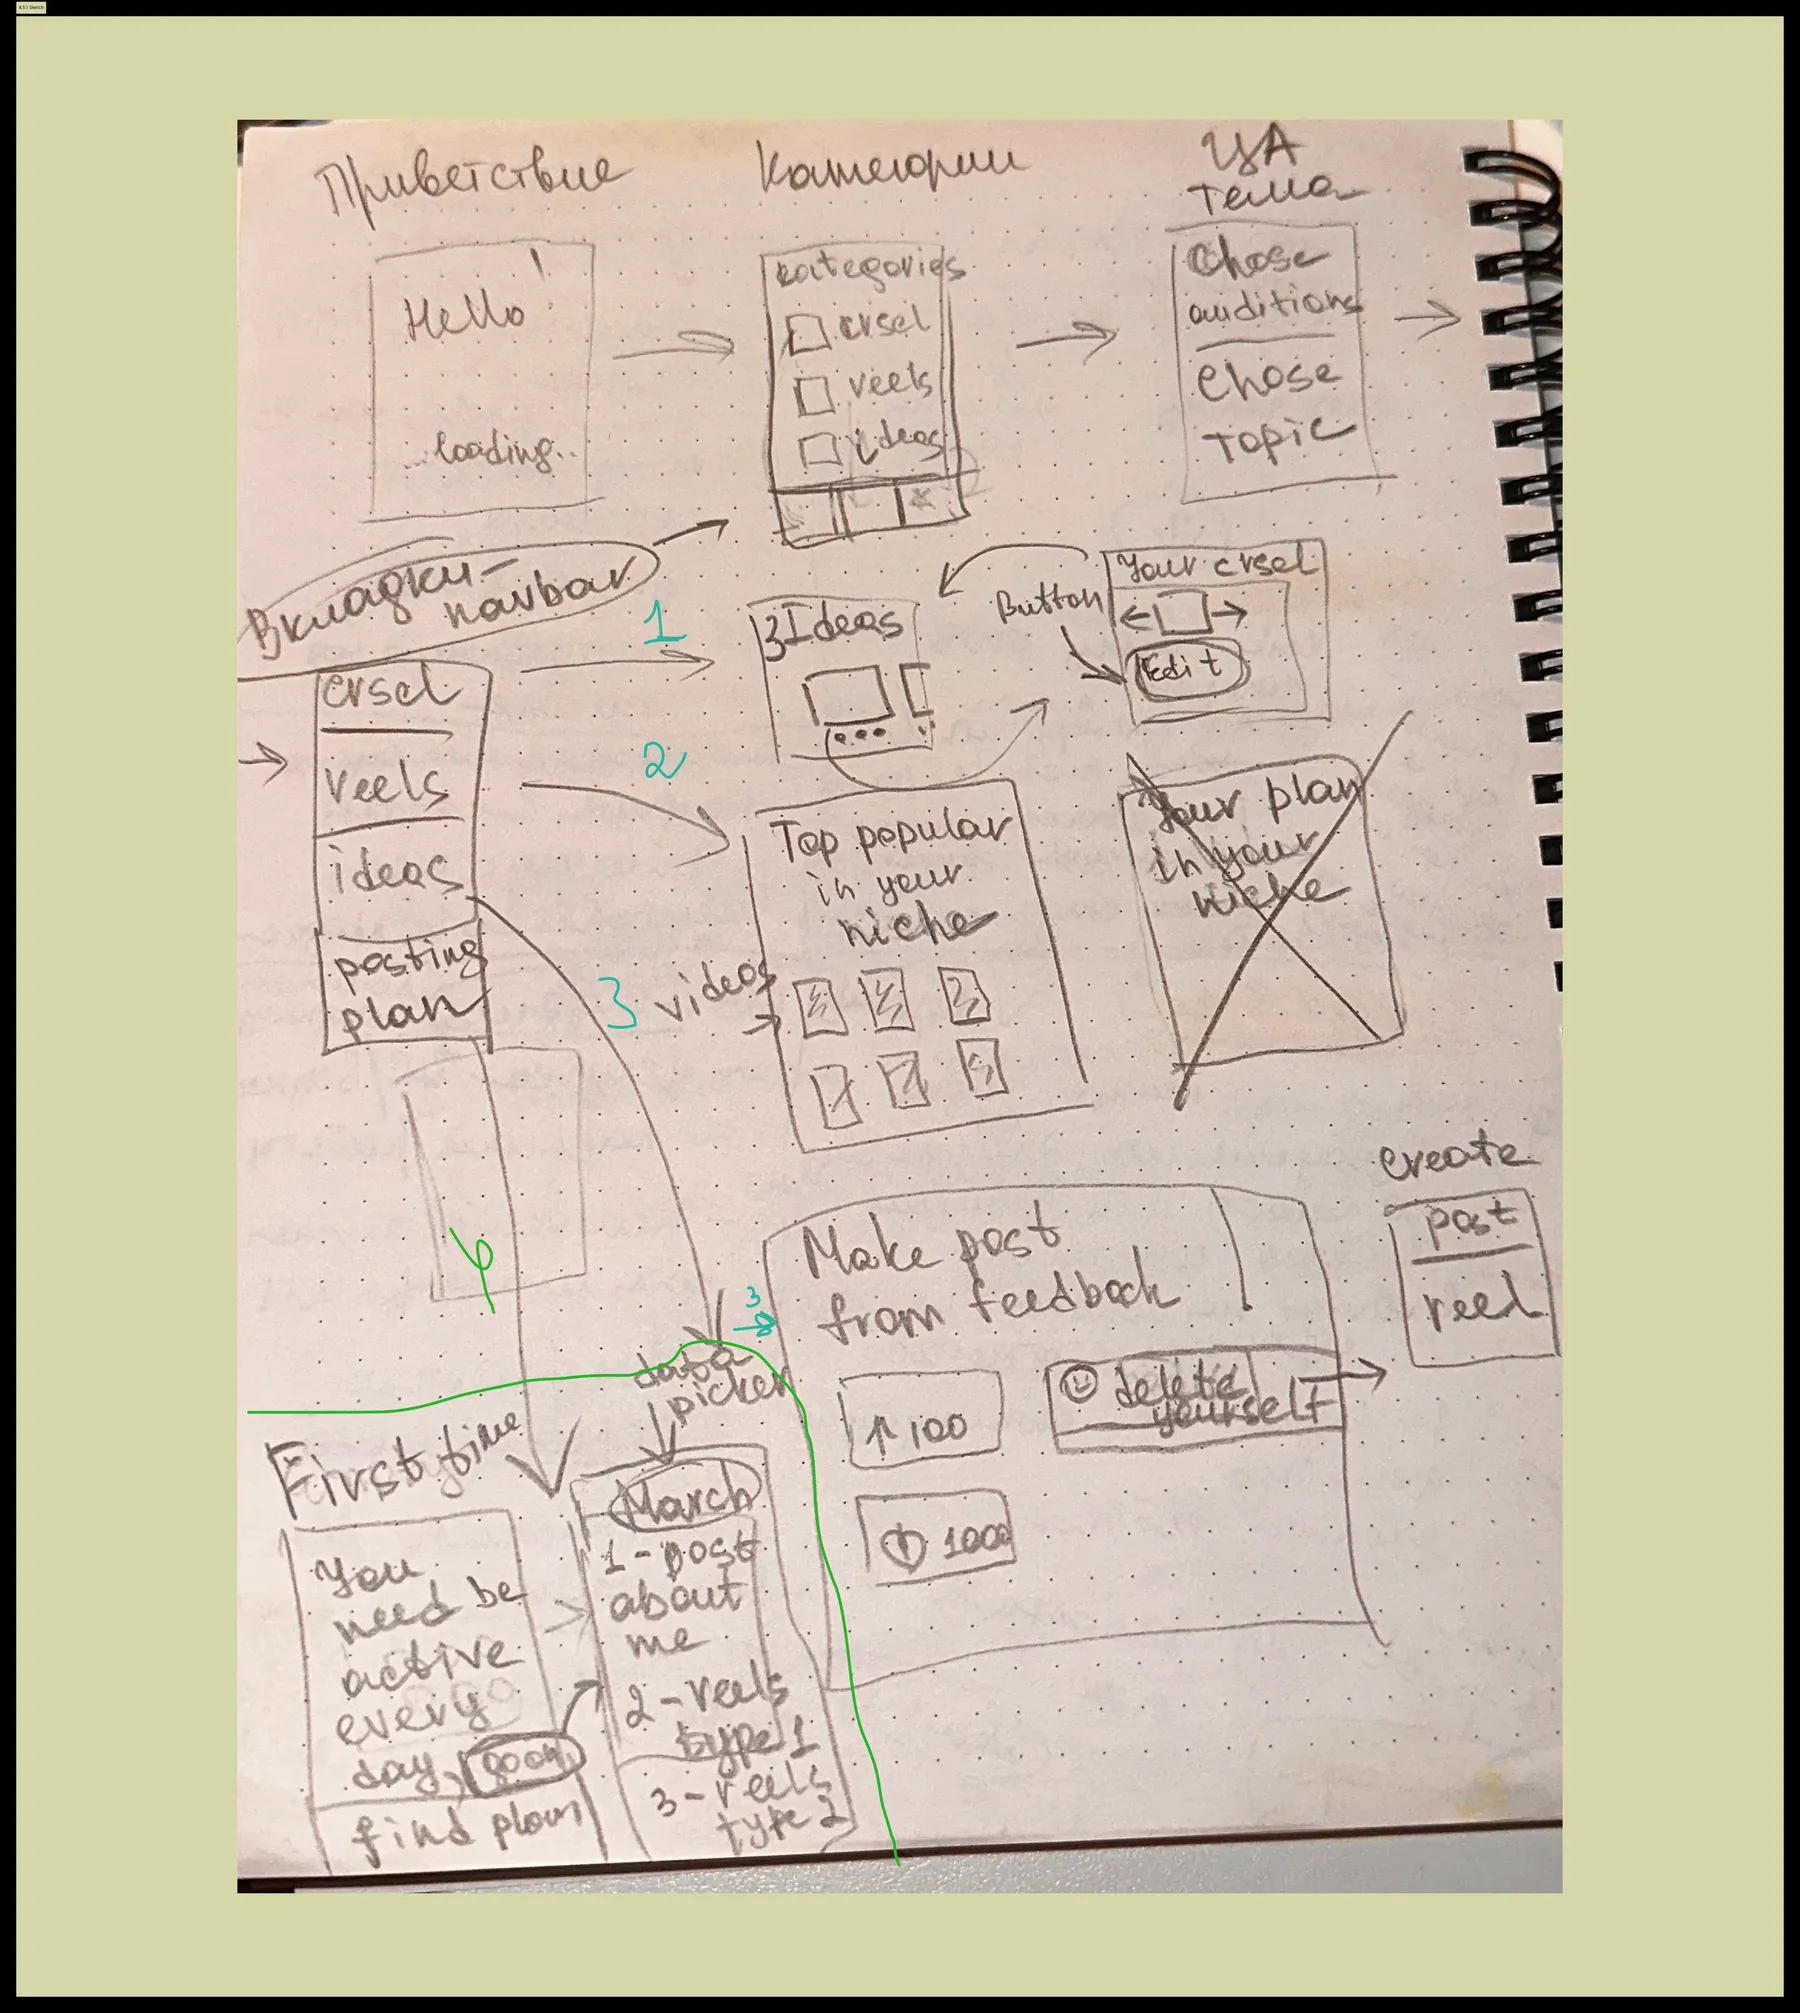 4.5.1 Sketch
Приветствие
Категории
ЦА
тема
Hello!
...loading..
categories
crsel
reels
ideas
Chose
auditions
Chose
Topic
Вкладки-
navbar
1
3 Ideas
Button
Your crsel
Edit
crsel
reels
ideas
posting
plan
2
Top popular
in your
niche
Your plan
in your
niche
3
videos
create
post
reed
Make post
from feedback
3
data
picker
↑ 100
delete
yourself
1000
First time
You
need be
active
every
day,
find plan
March
1-post
about
me
2-reels
type 1
3-reels
type 2